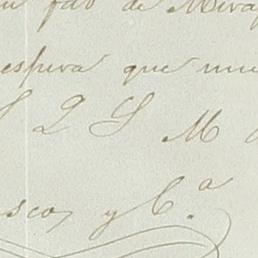 fav de Mira
espera que mu
S Q S M
scos y C.ª